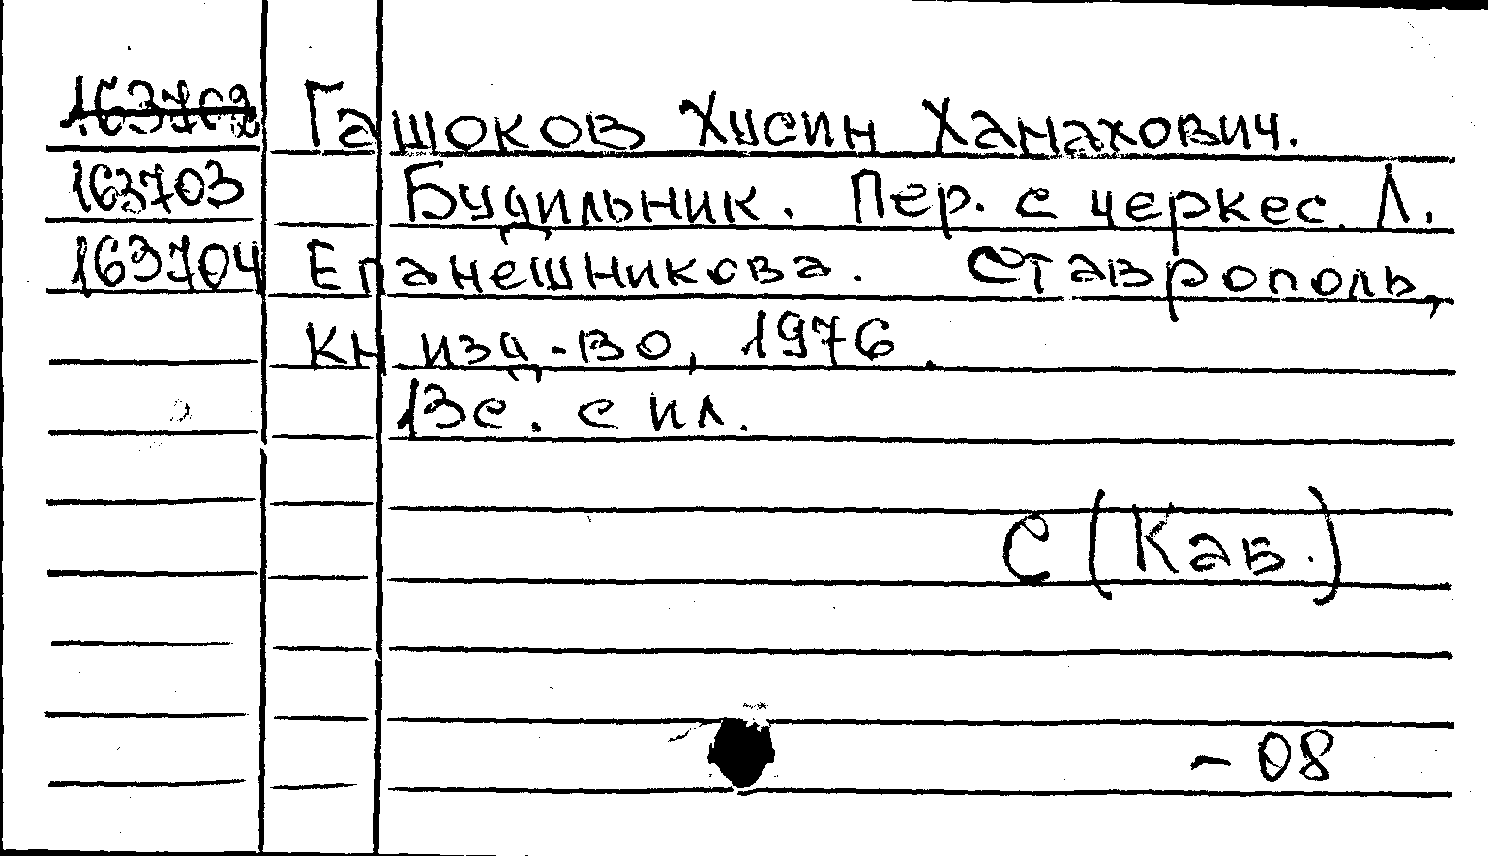 163702 Гашоков Хусин Ханахович.
163703 Будильник. Пер. с черкес. Л.
163704 Епанешникова. Ставрополь,
Кн изд-во, 1976.
13с. с ил.
С (Кав.)
- 08